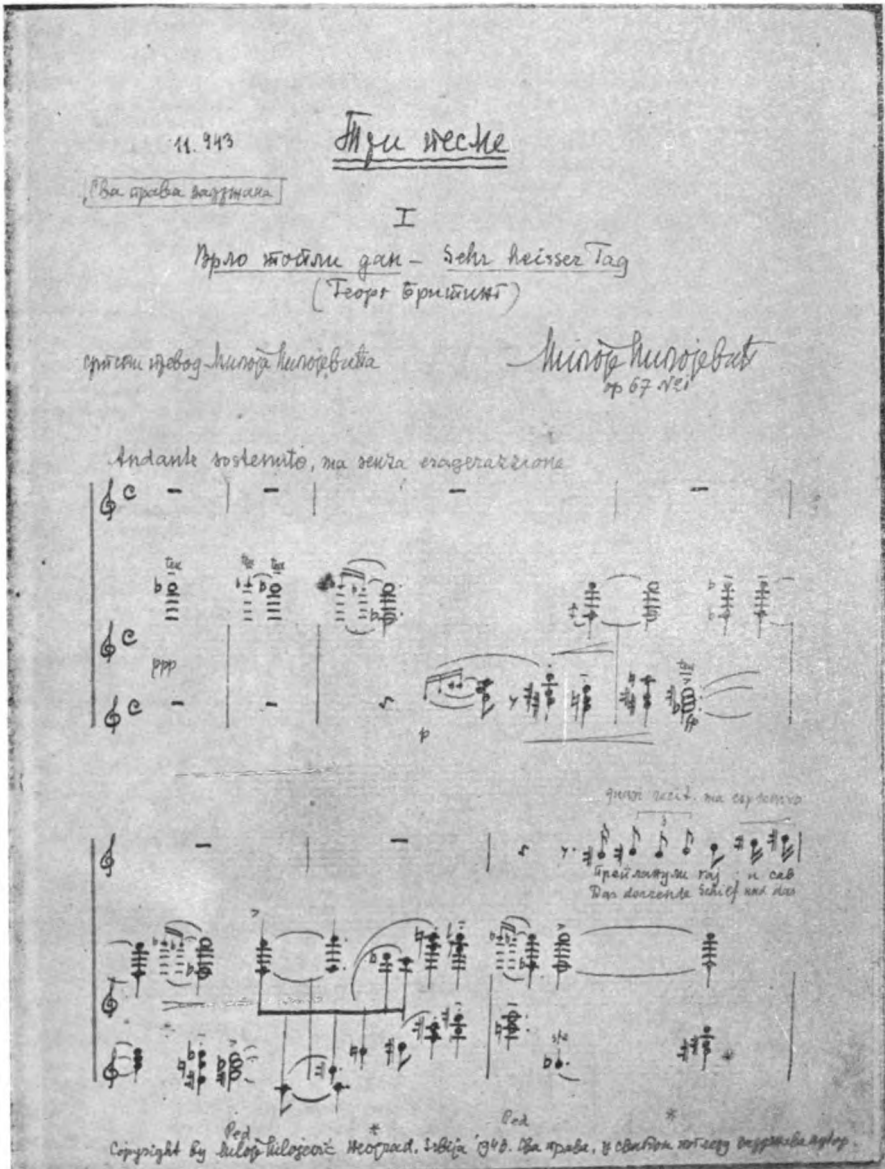 11. 943
Три песме
Сва права задржана
I
Врло топли дан – Sehr heisser Tag
(Георг Бритинг)
српски превод Милоја Милојевића
Милоје Милојевић
op 67 №1
Andante sostenuto, ma senza esagerazzione
ten ten ten
ppp
p
fp
quasi recit. ma espressivo
3
гај и сав
Das dorrende Schilf und das
Ped Ped
Copyright by Miloje Milojević Beograd, Srbija 194 . Сва права, у сваком погледу задржава аутор.